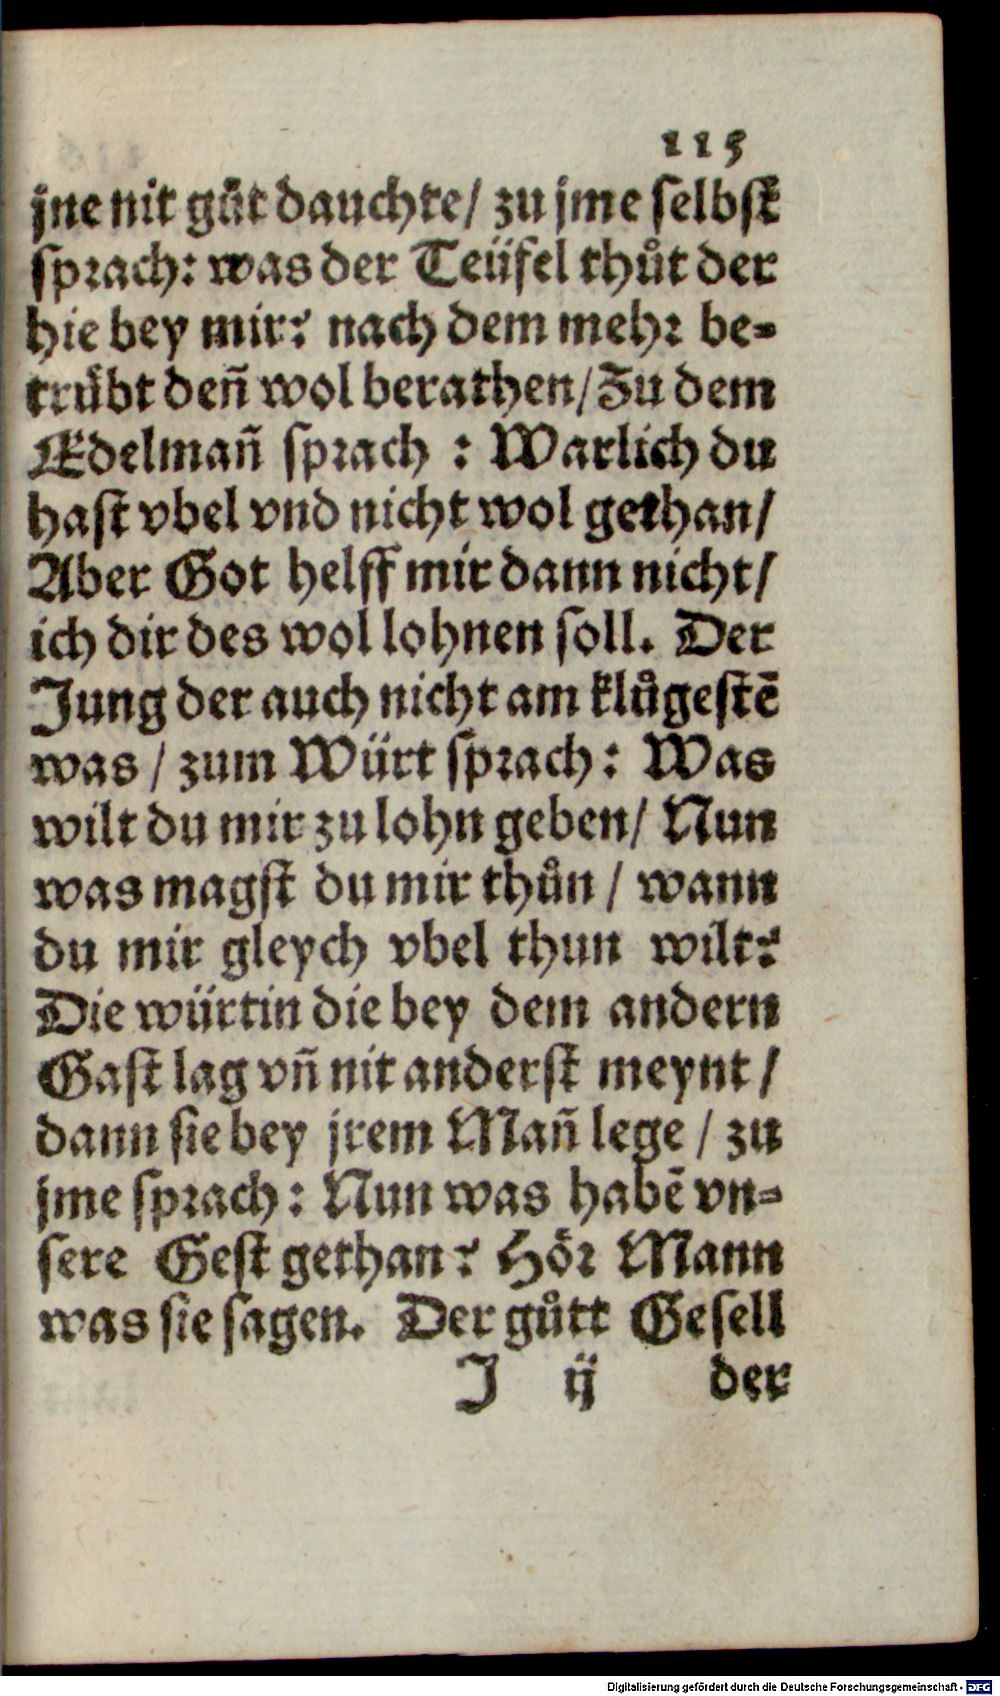 115
jne nit gůt dauchte/ zu jme selbst
sprach: was der Teüfel thůt der
hie bey mir? nach dem mehr be-
trübt deñ wol berathen/Zu dem
Edelmañ sprach : Warlich du
hast vbel vnd nicht wol gethan/
Aber Got helff mir dann nicht/
ich dir des wol lohnen soll. Der
Jung der auch nicht am klůgestē
was / zum Würt sprach: Was
wilt du mir zu lohn geben/ Nun
was magst du mir thůn / wann
du mir gleych vbel thun wilt?
Die würtin die bey dem andern
Gast lag vñ nit anderst meynt /
dann sie bey jrem Mañ lege / zu
jme sprach: Nun was habē vn-
sere Gest gethan? Hör Mann
was sie sagen. Der gůtt Gesell
J ij der
Digitalisierung gefördert durch die Deutsche Forschungsgemeinschaft - DFG